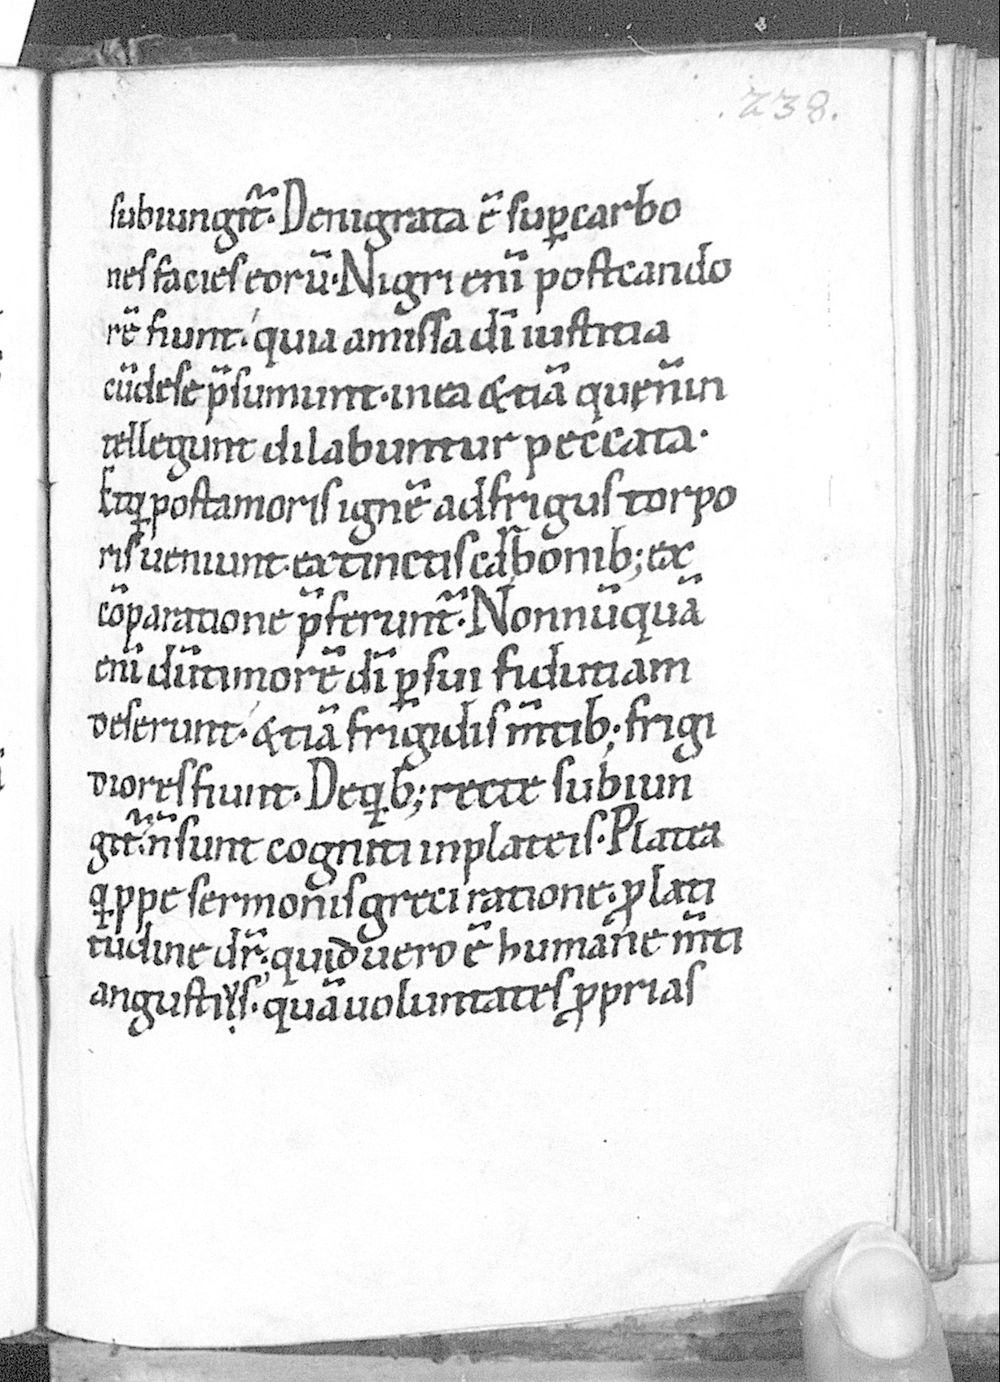 .238.
subiungit᷑. Denigrata ē sup̲ carbo
nes facies eorū. Nigri enī post cando
rē fiunt. quia amissa dī iustitia
cū de se p̄sumunt. in ea &tiā quę n̄ in
tellegunt dilabuntur peccata.
Etq̲ post amoris ignē ad frigus torpo
ris ueniunt extinctis carbonib; ex
cōparatione p̄ferunt᷑. Nonnūquā
enī dū timorē dī p̲ sui fidutiam
deserunt. &tiā frigidis m̄tib; frigi
diores fiunt. De q̲b; recte subiun
git᷑. n̄ sunt cogniti in plateis. Platea
q̲ppe sermonis greci ratione. ꝓ lati
tudine dr̄. quid uero ē humane m̄ti
angustiꝰ. quā uoluntates ꝓprias